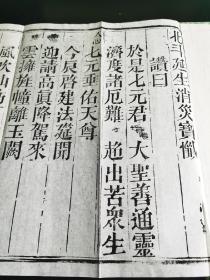 北斗延生消災寶懺
讚曰
於是七元君　大聖善通靈
濟度諸厄難　超出苦眾生
七元垂佑天尊
今辰啓建法筵開
迎請高真降駕來
雲擁旌幢離玉闕